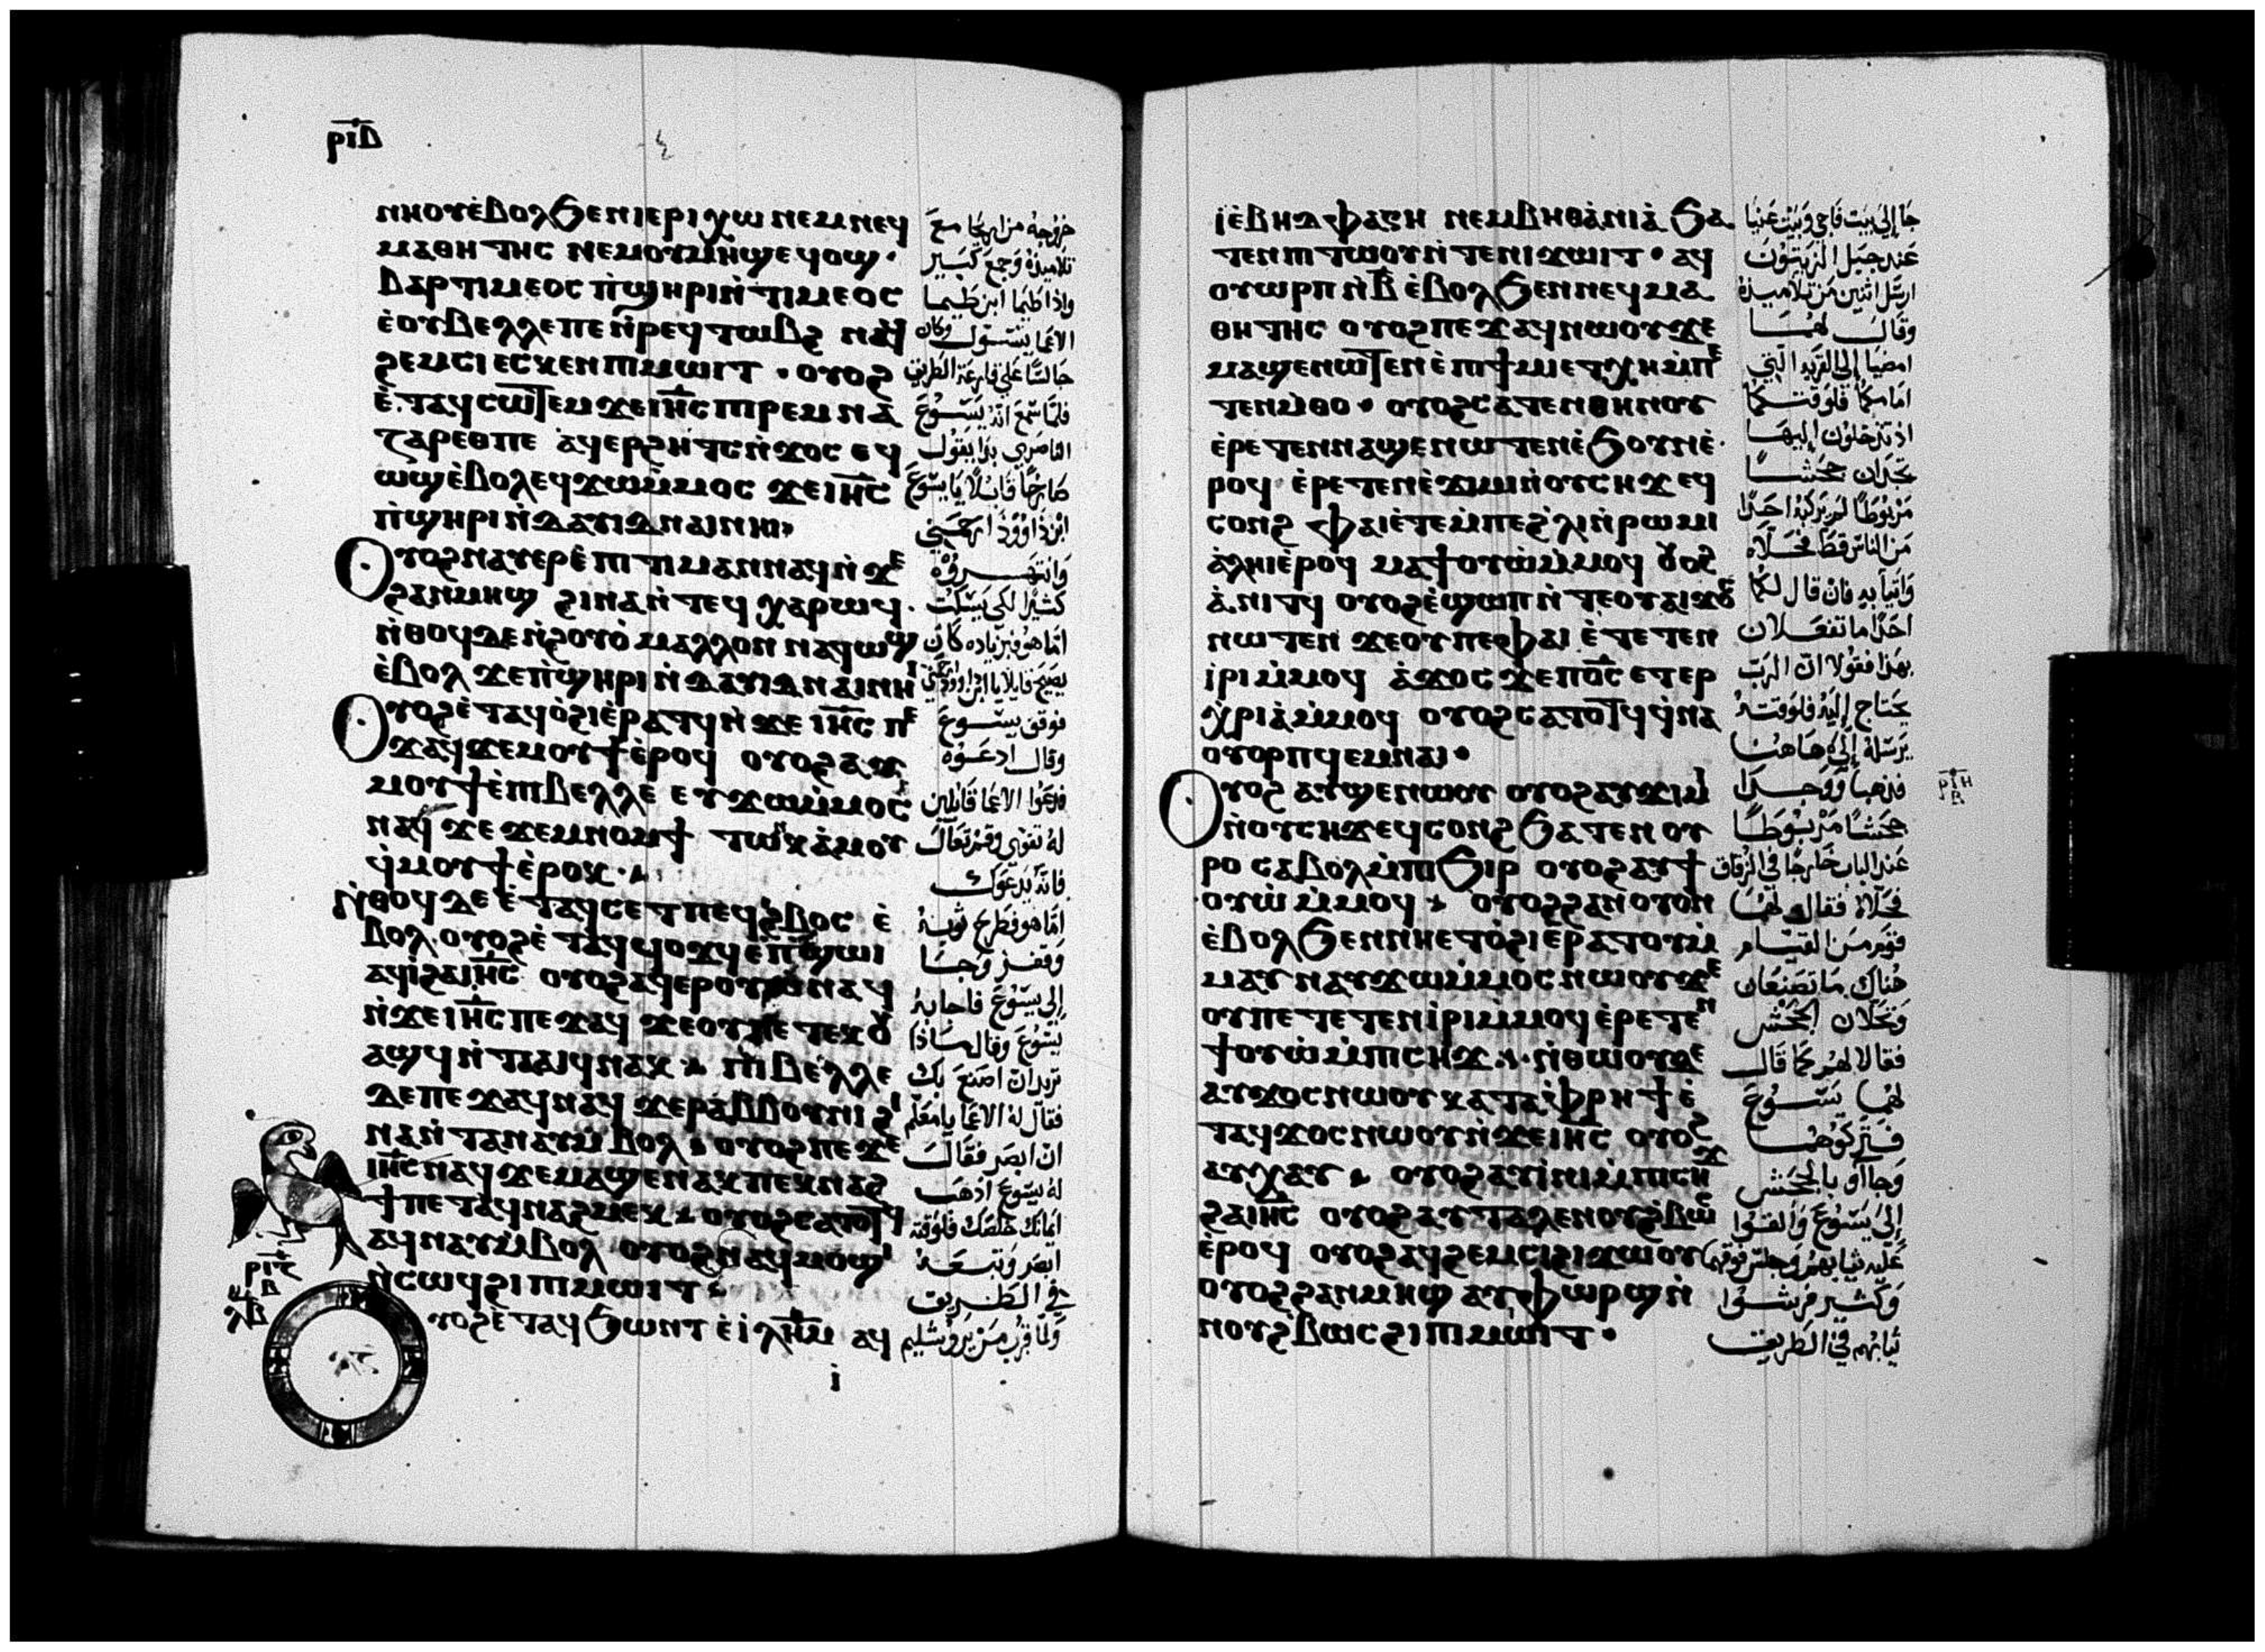 ⲣⲓⲇ
ⲛⲏⲟⲩⲉ̀ⲃⲟⲗϧⲉⲛⲓⲉⲣⲓⲭⲱ ⲛⲉⲙⲛⲉϥ
ⲙⲁⲑⲏⲧⲏⲥ ⲛⲉⲙⲟⲩⲙⲏϣⲉϥⲟϣ·
ⲃⲁⲣⲧⲓⲙⲉⲟⲥ ⲡ̀ϣⲏⲣⲓⲛ̀ⲧⲓⲙⲉⲟⲥ
ⲉ̀ⲟⲩⲃⲉⲗⲗⲉⲡⲉ ⲛ̀ⲣⲉϥⲧⲱⲃϩ ⲛⲁϥ
ϩⲉⲙⲥⲓ ⲉⲥⲕⲉⲛⲡⲓⲙⲱⲓⲧ · ⲟⲩⲟϩ
ⲉ̀ⲧⲁϥⲥⲱⲧⲉⲙ ϫⲉⲓⲏ̅ⲥ ⲡⲓⲣⲉⲙⲛⲁ
ⲍⲁⲣⲉⲑⲡⲉ ⲁ̀ϥⲉⲣϩⲏⲧⲥⲛ̀ϫⲟⲥ ⲉϥ
ⲱϣⲉ̀ⲃⲟⲗⲉϥϫⲱⲙ̀ⲙⲟⲥ ϫⲉⲓⲏ̅ⲥ
ⲡ̀ϣⲏⲣⲓⲛ̀ⲇⲁⲩⲓⲇⲛⲁⲓⲛⲏⲓ
ⲟⲩⲟϩⲛⲁⲩⲉⲣⲉ̀ⲡⲓⲧⲓⲙⲁⲛⲛⲁϥⲛ̀ϫⲉ
ϩⲁⲛⲙⲏϣ ϩⲓⲛⲁⲛ̀ⲧⲉϥⲭⲁⲣⲱϥ·
ⲛ̀ⲑⲟϥⲇⲉⲛ̀ϩⲟⲩⲟ̀ ⲙⲁⲗⲗⲟⲛ ⲛⲁϥⲱϣ
ⲉ̀ⲃⲟⲗ ϫⲉⲡ̀ϣⲏⲣⲓⲛ̀ⲇⲁⲩⲓⲇⲛⲁⲓⲛⲏⲓ
ⲟⲩⲟϩⲉ̀ⲧⲁϥⲟ̀ϩⲓⲉ̀ⲣⲁⲧϥⲛ̀ϫⲉ ⲓⲏ̅ⲥ ⲡⲉ
ϫⲁϥϫⲉⲙⲟⲩϯⲉ̀ⲣⲟϥ ⲟⲩⲟϩⲁⲩ
ⲙⲟⲩϯⲉ̀ⲡⲓⲃⲉⲗⲗⲉ ⲉⲩϫⲱⲙ̀ⲙⲟⲥ
ⲛⲁϥ ϫⲉ ϫⲉⲙⲛⲟⲙϯ ⲧⲱⲛⲕ ⲁ̀ⲙⲟⲩ
ϥ̀ⲙⲟⲩϯⲉ̀ⲣⲟⲕ·
ⲛ̀ⲑⲟϥ ⲇⲉ ⲉ̀ⲧⲁϥⲥⲉⲧⲡⲉϥϩ̀ⲃⲟⲥ ⲉ̀
ⲃⲟⲗ·ⲟⲩⲟϩⲉ̀ⲧⲁϥϥⲟϫϥⲉ̀ⲡ̀ϣⲱⲓ
ⲁϥⲓ̀ϩⲁⲓⲏ̅ⲥ ⲟⲩⲟϩⲁϥⲉⲣⲟⲩⲱⲛⲁϥ
ⲛ̀ϫⲉⲓⲏ̅ⲥ ⲡⲉϫⲁϥ ϫⲉⲟⲩⲡⲉⲧⲉⲕⲟⲩ
ⲁϣϥⲛ̀ⲧⲁⲁⲓϥⲛⲁⲕ ⲡⲓⲃⲉⲗⲗⲉ
ⲇⲉⲡⲉϫⲁϥⲛⲁϥ ϫⲉⲣⲁⲃⲃⲟⲩⲛⲓ ϩⲓ
ⲛⲁⲛ̀ⲧⲁⲛⲁⲩⲙ̀ⲃⲟⲗ ⲟⲩⲟϩⲡⲉϫⲉ
ⲓⲏ̅ⲥⲛⲁϥ ϫⲉⲙⲁϣⲉⲛⲁⲕ ⲡⲉⲕⲛⲁϩ
ϯⲡⲉⲧⲁϥⲛⲁϩⲙⲉⲕ ⲟⲩⲟϩⲥⲁⲧⲟⲧϥ
ⲁϥⲛⲁⲩⲙ̀ⲃⲟⲗ ⲟⲩⲟϩⲛⲁϥⲙⲟϣⲓ
ⲛ̀ⲥⲱϥϩⲓⲡⲓⲙⲱⲓⲧ
ⲟⲩⲟϩⲉ̀ⲧⲁϥϧⲱⲛⲧ ⲉ̀ⲓ̀ⲗⲏ̅ⲙ ⲁϥ
ⲓ̀
خروجه من اريحا مع
تلاميذه وجمع كبير
واذا طيما ابن طيما
الاعما يتسول وكان
جالسًا على قارعة الطريق
فلمّا سمع انّه يَسُوعَ
الناصري بدا يقول
صارخًا قايلًا يا يسوع
ابن داوود ارحمني
وانتهروه
كثيرًا لكي يسكت
امّا هو فبزياده كان
يصيح قايلا يا ابن داوود ارحمني
فوقف يسوع
وقال ادعوه
فدعوا الاعما قايلين
له تقوي وقم تعال
فانّه يدعوك
امّا هو فطرح ثوبه
وقفز وجا
إلى يسوع فاجابه
يسوع وقال ماذا
تريد ان اصنع بك
فقال له الاعما يا معلم
ان ابصر فقال
له يسوع اذهب
ايمانك خلصك فلوقته
ابصر وتبعه
في الطريق
ولمّا قرب من يروشليم
ⲓⲉ̀ⲃⲏⲇⲫⲁⲅⲏ ⲛⲉⲙⲃⲏⲑⲁ̀ⲛⲓⲁ̀ ϧⲁ
ⲧⲉⲛⲡⲓⲧⲱⲟⲩⲛ̀ⲧⲉⲛⲓϫⲱⲓⲧ · ⲁϥ
ⲟⲩⲱⲣⲡ ⲛ̀ⲃ̅ ⲉ̀ⲃⲟⲗϧⲉⲛⲛⲉϥⲙⲁ
ⲑⲏⲧⲏⲥ ⲟⲩⲟϩⲡⲉϫⲁϥⲛⲱⲟⲩϫⲉ
ⲙⲁϣⲉⲛⲱⲧⲉⲛⲉ̀ⲡⲓϯⲙⲓⲉⲧⲭⲏⲙ̀ⲡⲉ
ⲧⲉⲛⲙ̀ⲑⲟ · ⲟⲩⲟϩⲥⲁⲧⲉⲛⲑⲏⲛⲟⲩ
ⲉ̀ⲣⲉⲧⲉⲛⲛⲁϣⲉⲛⲱⲧⲉⲛⲉ̀ϧⲟⲩⲛⲉ̀
ⲣⲟϥ ⲉ̀ⲣⲉⲧⲉⲛⲉ̀ϫⲓⲙⲓⲛ̀ⲟⲩⲥⲏϫ ⲉϥ
ⲥⲟⲛϩ ⲫⲁⲓⲉ̀ⲧⲉⲙ̀ⲡⲉϩ̀ⲗⲓⲛ̀ⲣⲱⲙⲓ
ⲁ̀ⲗⲏⲓⲉ̀ⲣⲟϥ ⲙⲁϯⲟⲩⲱ̀ⲙ̀ⲙⲟϥ ⲟⲩⲟϩ
ⲁ̀ⲛⲓⲧϥ ⲟⲩⲟϩⲉ̀ϣⲱⲡ ⲛ̀ⲧⲉⲟⲩⲁⲓϫⲟⲥ
ⲛⲱⲧⲉⲛ ϫⲉⲟⲩⲡⲉⲫⲁⲓ ⲉ̀ⲧⲉⲧⲉⲛ
ⲓ̀ⲣⲓⲙ̀ⲙⲟϥ ⲁ̀ϫⲟⲥϫⲉⲡⲟ̅ⲥ ⲉⲧⲉⲣ
ⲭ̀ⲣⲓⲁ̀ⲙ̀ⲙⲟϥ ⲟⲩⲟϩⲥⲁⲧⲟⲧϥϥ̀ⲛⲁ
ⲟⲩⲟⲣⲡϥⲉⲙⲛⲁⲓ·
ⲟⲩⲟϩ ⲁⲩϣⲉⲛⲱⲟⲩ ⲟⲩⲟϩⲁⲩϫⲓⲙⲓ
ⲛ̀ⲟⲩⲥⲏϫⲉϥⲥⲟⲛϩ ϧⲁⲧⲉⲛ ⲟⲩ
ⲣⲟ ⲥⲁⲃⲟⲗⲙ̀ⲡⲓϧⲓⲣ ⲟⲩⲟϩⲁⲩϯ
ⲟⲩⲱ̀ⲙ̀ⲙⲟϥ ⲟⲩⲟϩϩⲁⲛⲟⲩⲟⲛ
ⲉ̀ⲃⲟⲗϧⲉⲛⲛⲏⲉⲧⲟ̀ϩⲓⲉ̀ⲣⲁⲧⲟⲩⲙ̀
ⲙⲁⲩ ⲛⲁⲩϫⲱⲙ̀ⲙⲟⲥ ⲛⲱⲟⲩϫⲉ
ⲟⲩⲡⲉⲧⲉⲧⲉⲛⲓ̀ⲣⲓⲙ̀ⲙⲟϥ ⲉ̀ⲣⲉⲧⲉⲛ
ϯⲟⲩⲱ̀ⲙ̀ⲡⲓⲥⲏϫ ⲛ̀ⲑⲱⲟⲩⲇⲉ
ⲁⲩϫⲟⲥⲛⲱⲟⲩ ⲕⲁⲧⲁⲫ̀ⲣⲏϯⲉ̀
ⲧⲁϥϫⲟⲥⲛⲱⲟⲩⲛ̀ϫⲉⲓⲏⲥ ⲟⲩⲟϩ
ⲁⲩⲭⲁⲩ ⲟⲩⲟϩⲁⲩⲓ̀ⲛⲓⲙ̀ⲡⲓⲥⲏϫ
ϩⲁⲓⲏ̅ⲥ ⲟⲩⲟϩⲁⲩⲧⲁⲗⲉⲛⲟⲩϩ̀ⲃⲱⲥ
ⲉ̀ⲣⲟϥ ⲟⲩⲟϩⲁϥϩⲉⲙⲥⲓϩⲓϫⲱⲟⲩ
ⲟⲩⲟϩϩⲁⲛⲙⲏϣ ⲁⲩⲫⲱⲣϣⲛ̀
ⲛⲟⲩϩ̀ⲃⲱⲥϩⲓⲡⲓⲙⲱⲓⲧ·
جا إلى بيت فاجي وبيت عنيا
عند جبل الزيتون
ارسل اثنين من تلاميذه
وقال لهما
امضيا إلى القريه التي
امامكما فلوقتكما
اذ تدخلون إليها
تجدان جحشًا
مربوطًا لم يركبه احدًا
من الناس قط فحلاه
واتيا به فان قال لكما
احدًا ما تفعلان
بهذا فقولا انّ الرب
يحتاج إليه فلوقته
يرسله إلى هاهنا
فذهبا ووجدا
جحشًا مربوطًا
عند الباب خارجًا في الزقاق
فحلاه فقال لهما
قوم من القيام
هناك ما تصنعان
وتحلان الجحش
فقالا لهم كما قال
لهما يسوع
فتركوهما
وجاآو بالجحش
إلى يسوع والقوا
عليه ثيابهم وجلس فوقهما
وكثير فرشوا
ثيابهم في الطريق